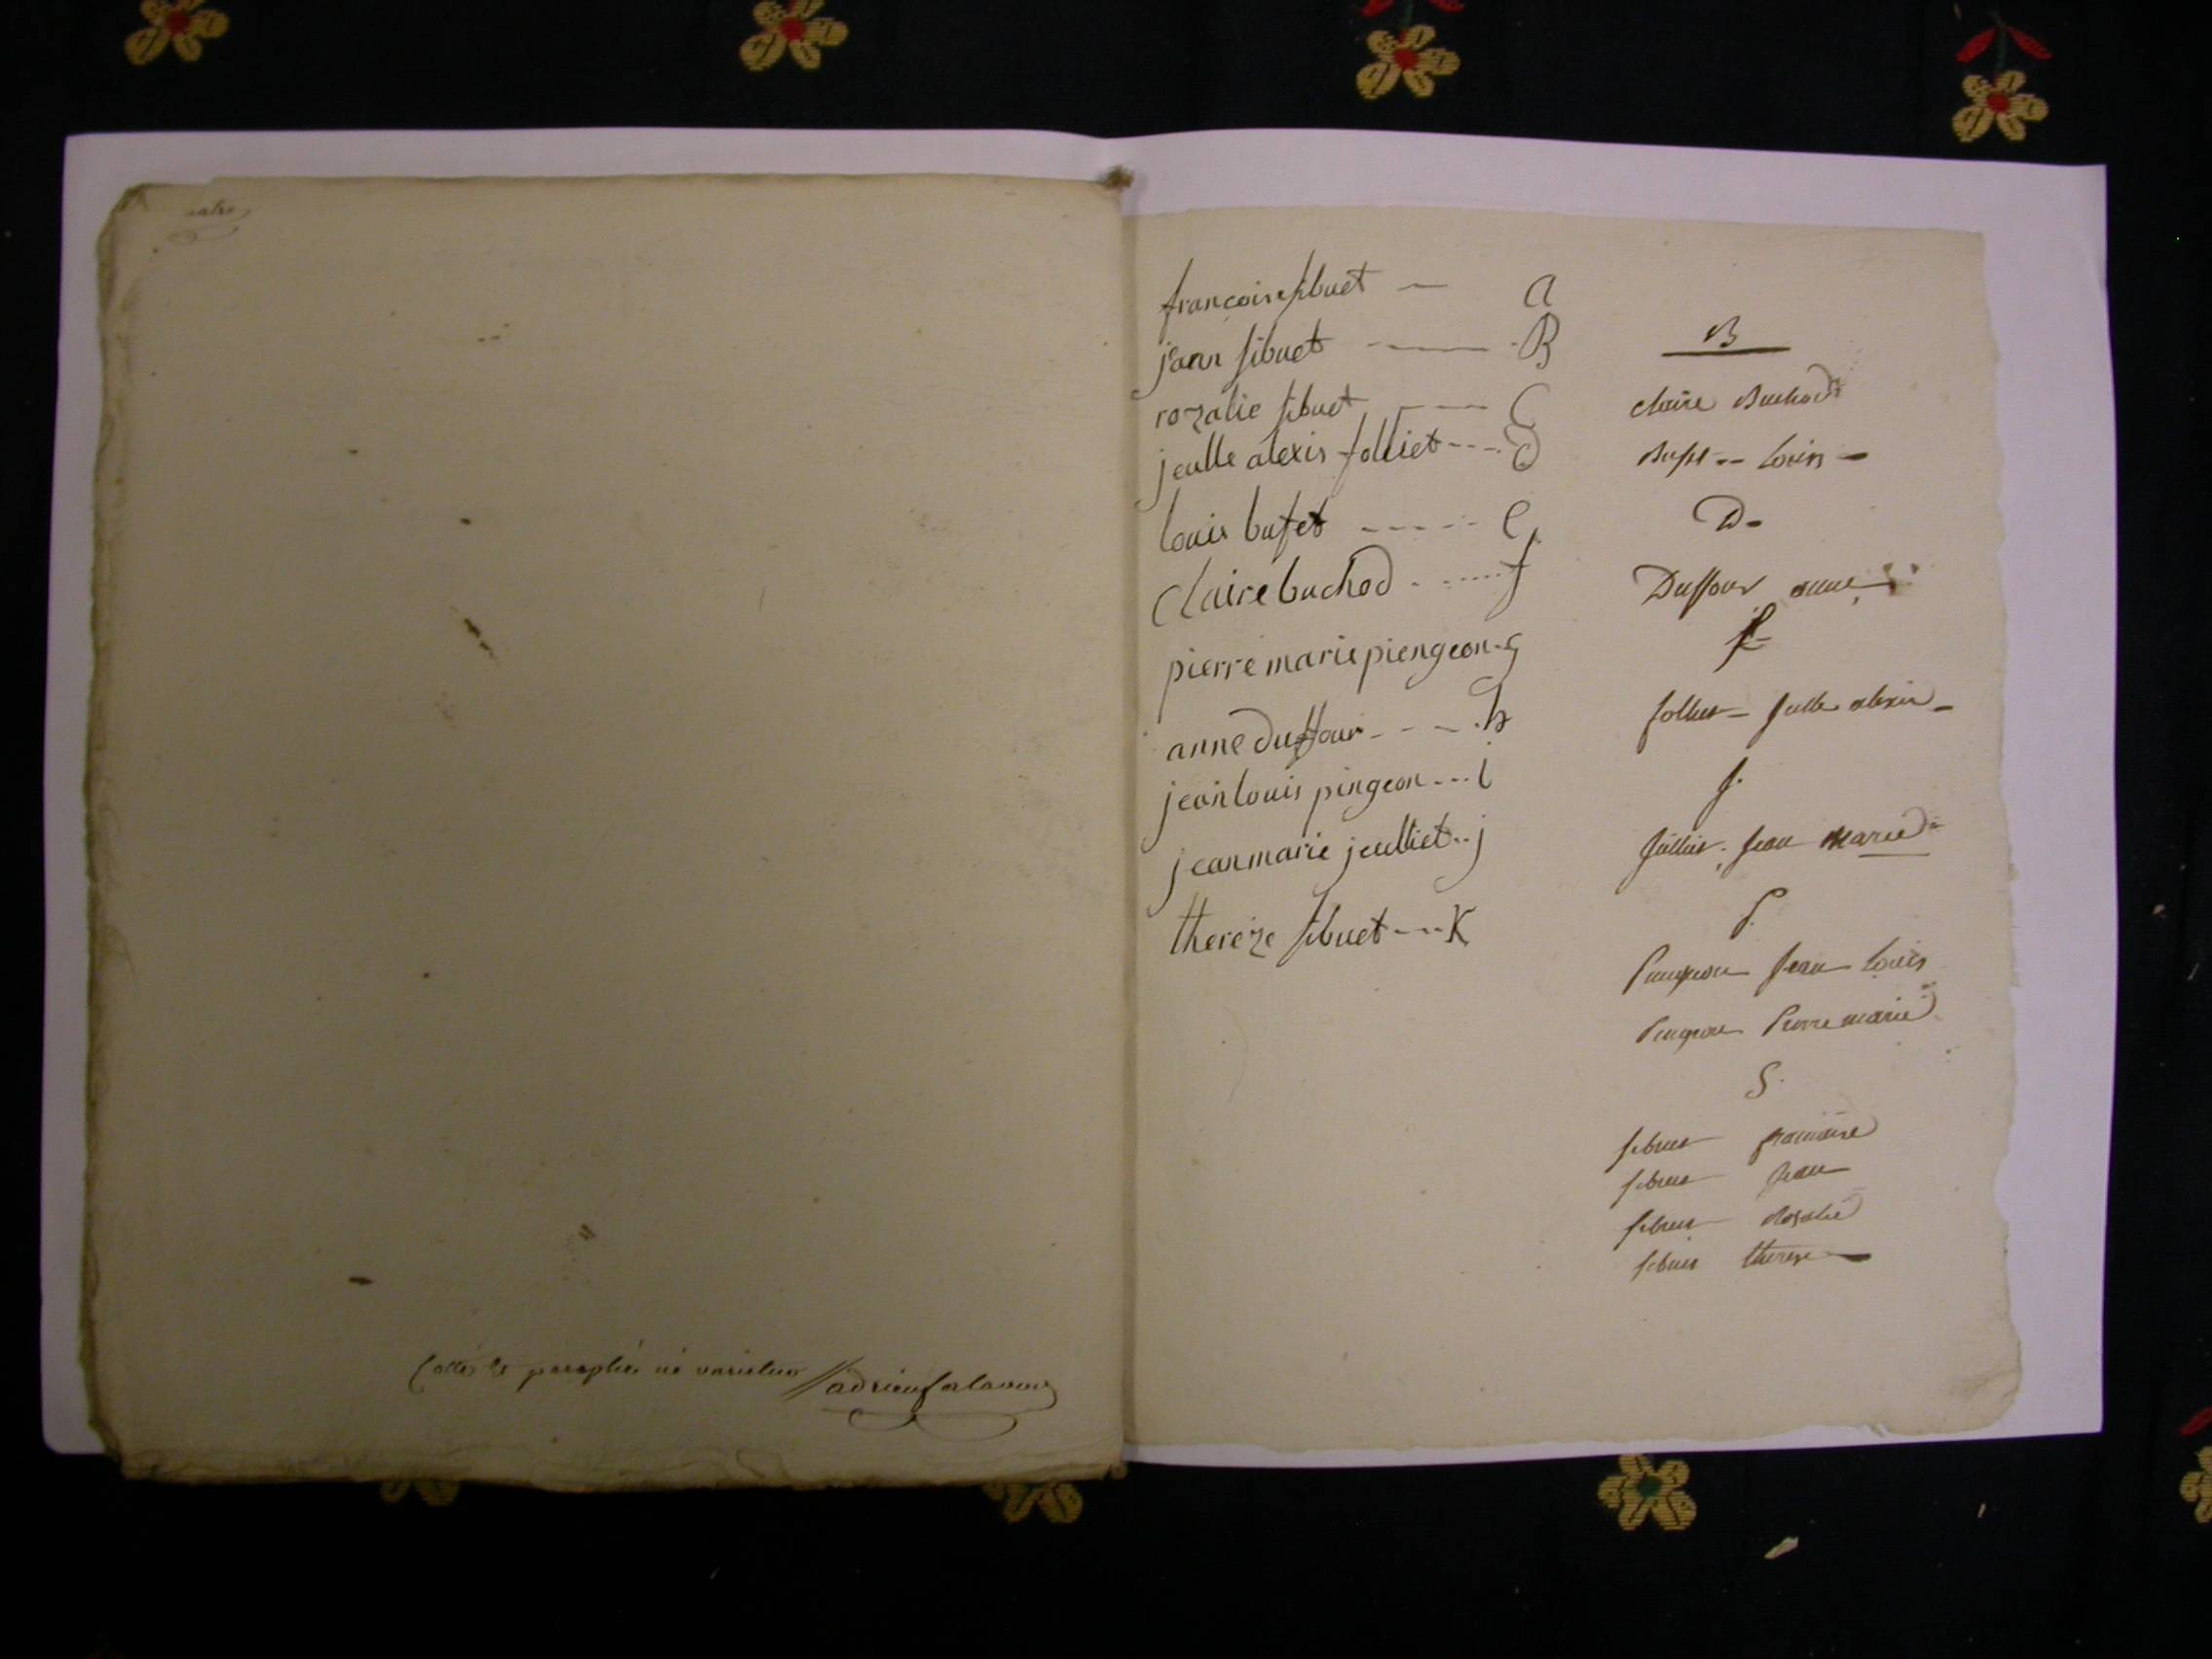 françoise sibuet — a
jean sibuet —— B
rozalie sibuet ---- C
jeulle alexis folliet --- D
louis bufet ----- e
Claire buchod ...... f
pierre marie piengeon - g
anne duffour - - - h
jean louis pingeon --- i
jean marie jeulliet -- j
thereze sibuet --- K
B
Claire Buchod
Bufet -- Louis —
D -
Duffour anne
f -
folliet — Julle alexis —
J.
Julliet. Jean Marie
P.
Pingeon Jean Louis
Pingeon Pierre marie
S.
sibuet françoise
sibuet Jean
sibuet Rosalie
sibuet therese —
Cotté et paraphé né varietur //adrien